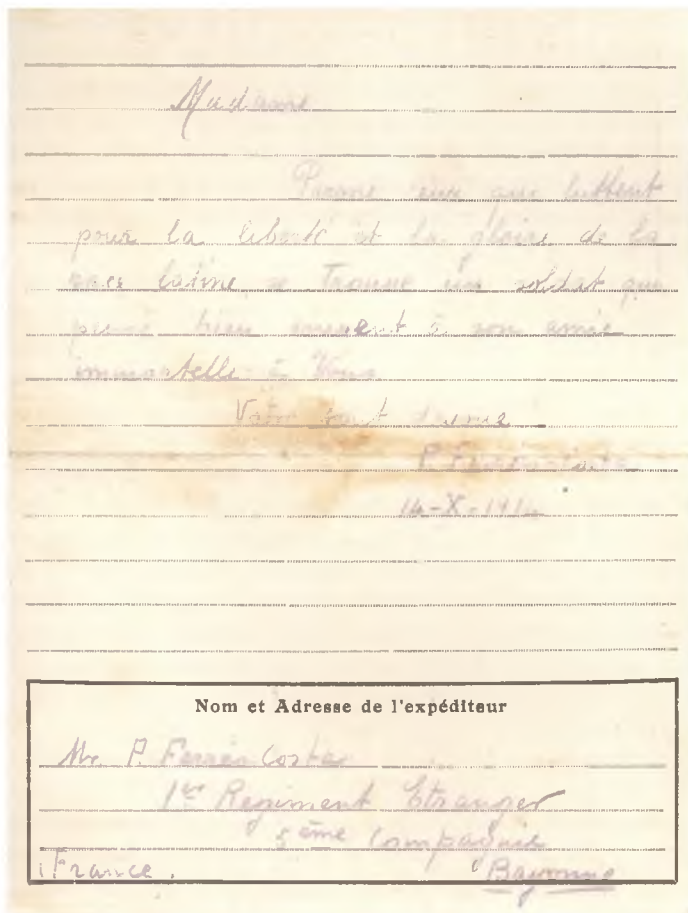 Madame
Parmi ceux qui luttent
pour la liberté et la gloire de la
race latine se trouve un soldat qui
pense bien souvent à son amie
immortelle à Vous
Votre tout
P. Ferrés-Costa
14-X-1914
Nom et Adresse de l'expéditeur
Mr. P. Ferrés-Costa
1er Regiment Etranger
5ème Compagnie
France. Bayonne